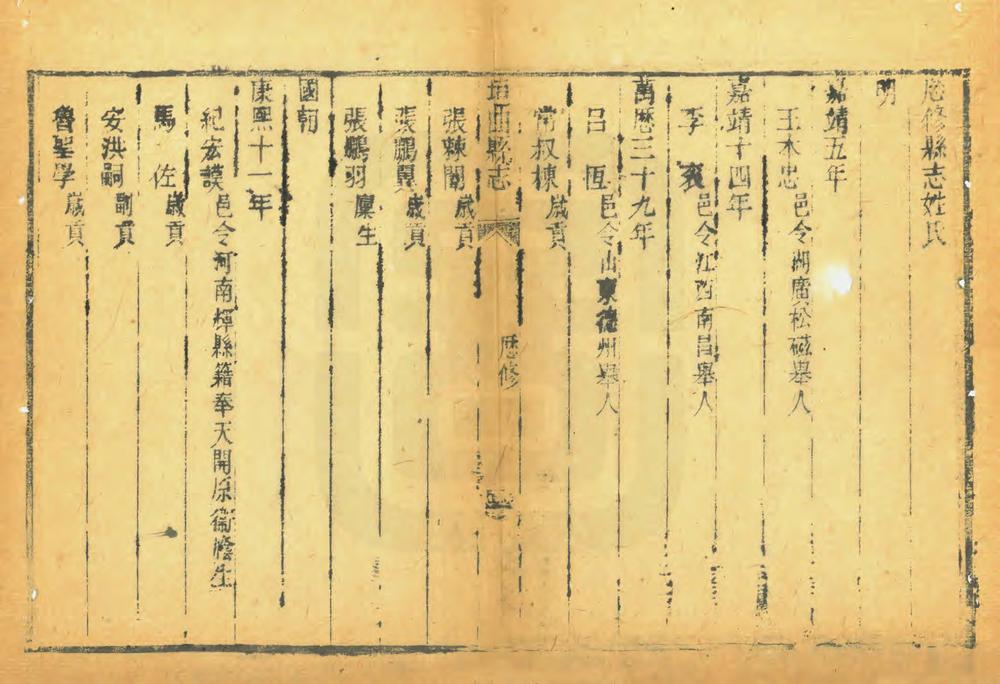 歷修縣志姓氏
明
嘉靖五年
王本忠 邑令湖廣松磁舉人
嘉靖十四年
李 邑令江西南昌舉人
萬歷三十九年
呂恆 邑令山東德州舉人
常叔棟 歲貢
垣曲縣志 歷修
張棘闈 歲貢
張鵬翼 歲貢
張鵬羽 廩生
國朝
康熙十一年
紀宏謨 邑令河南輝縣籍奉天開原衞廕生
馬佐 歲貢
安洪嗣 副貢
魯聖學 歲貢